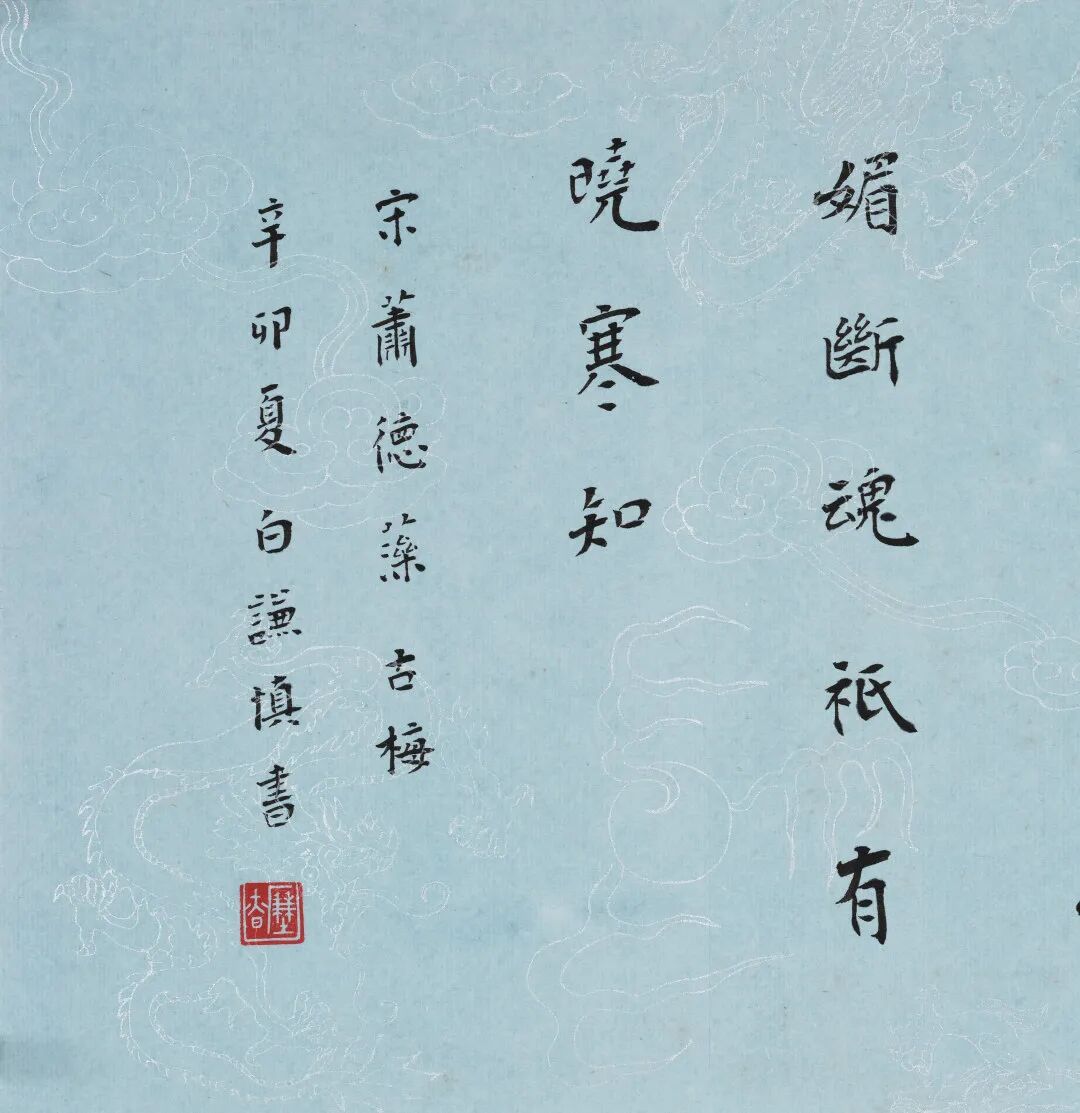 媚斷魂祇有
曉寒知
宋蕭德藻古梅
辛卯夏白謙慎書